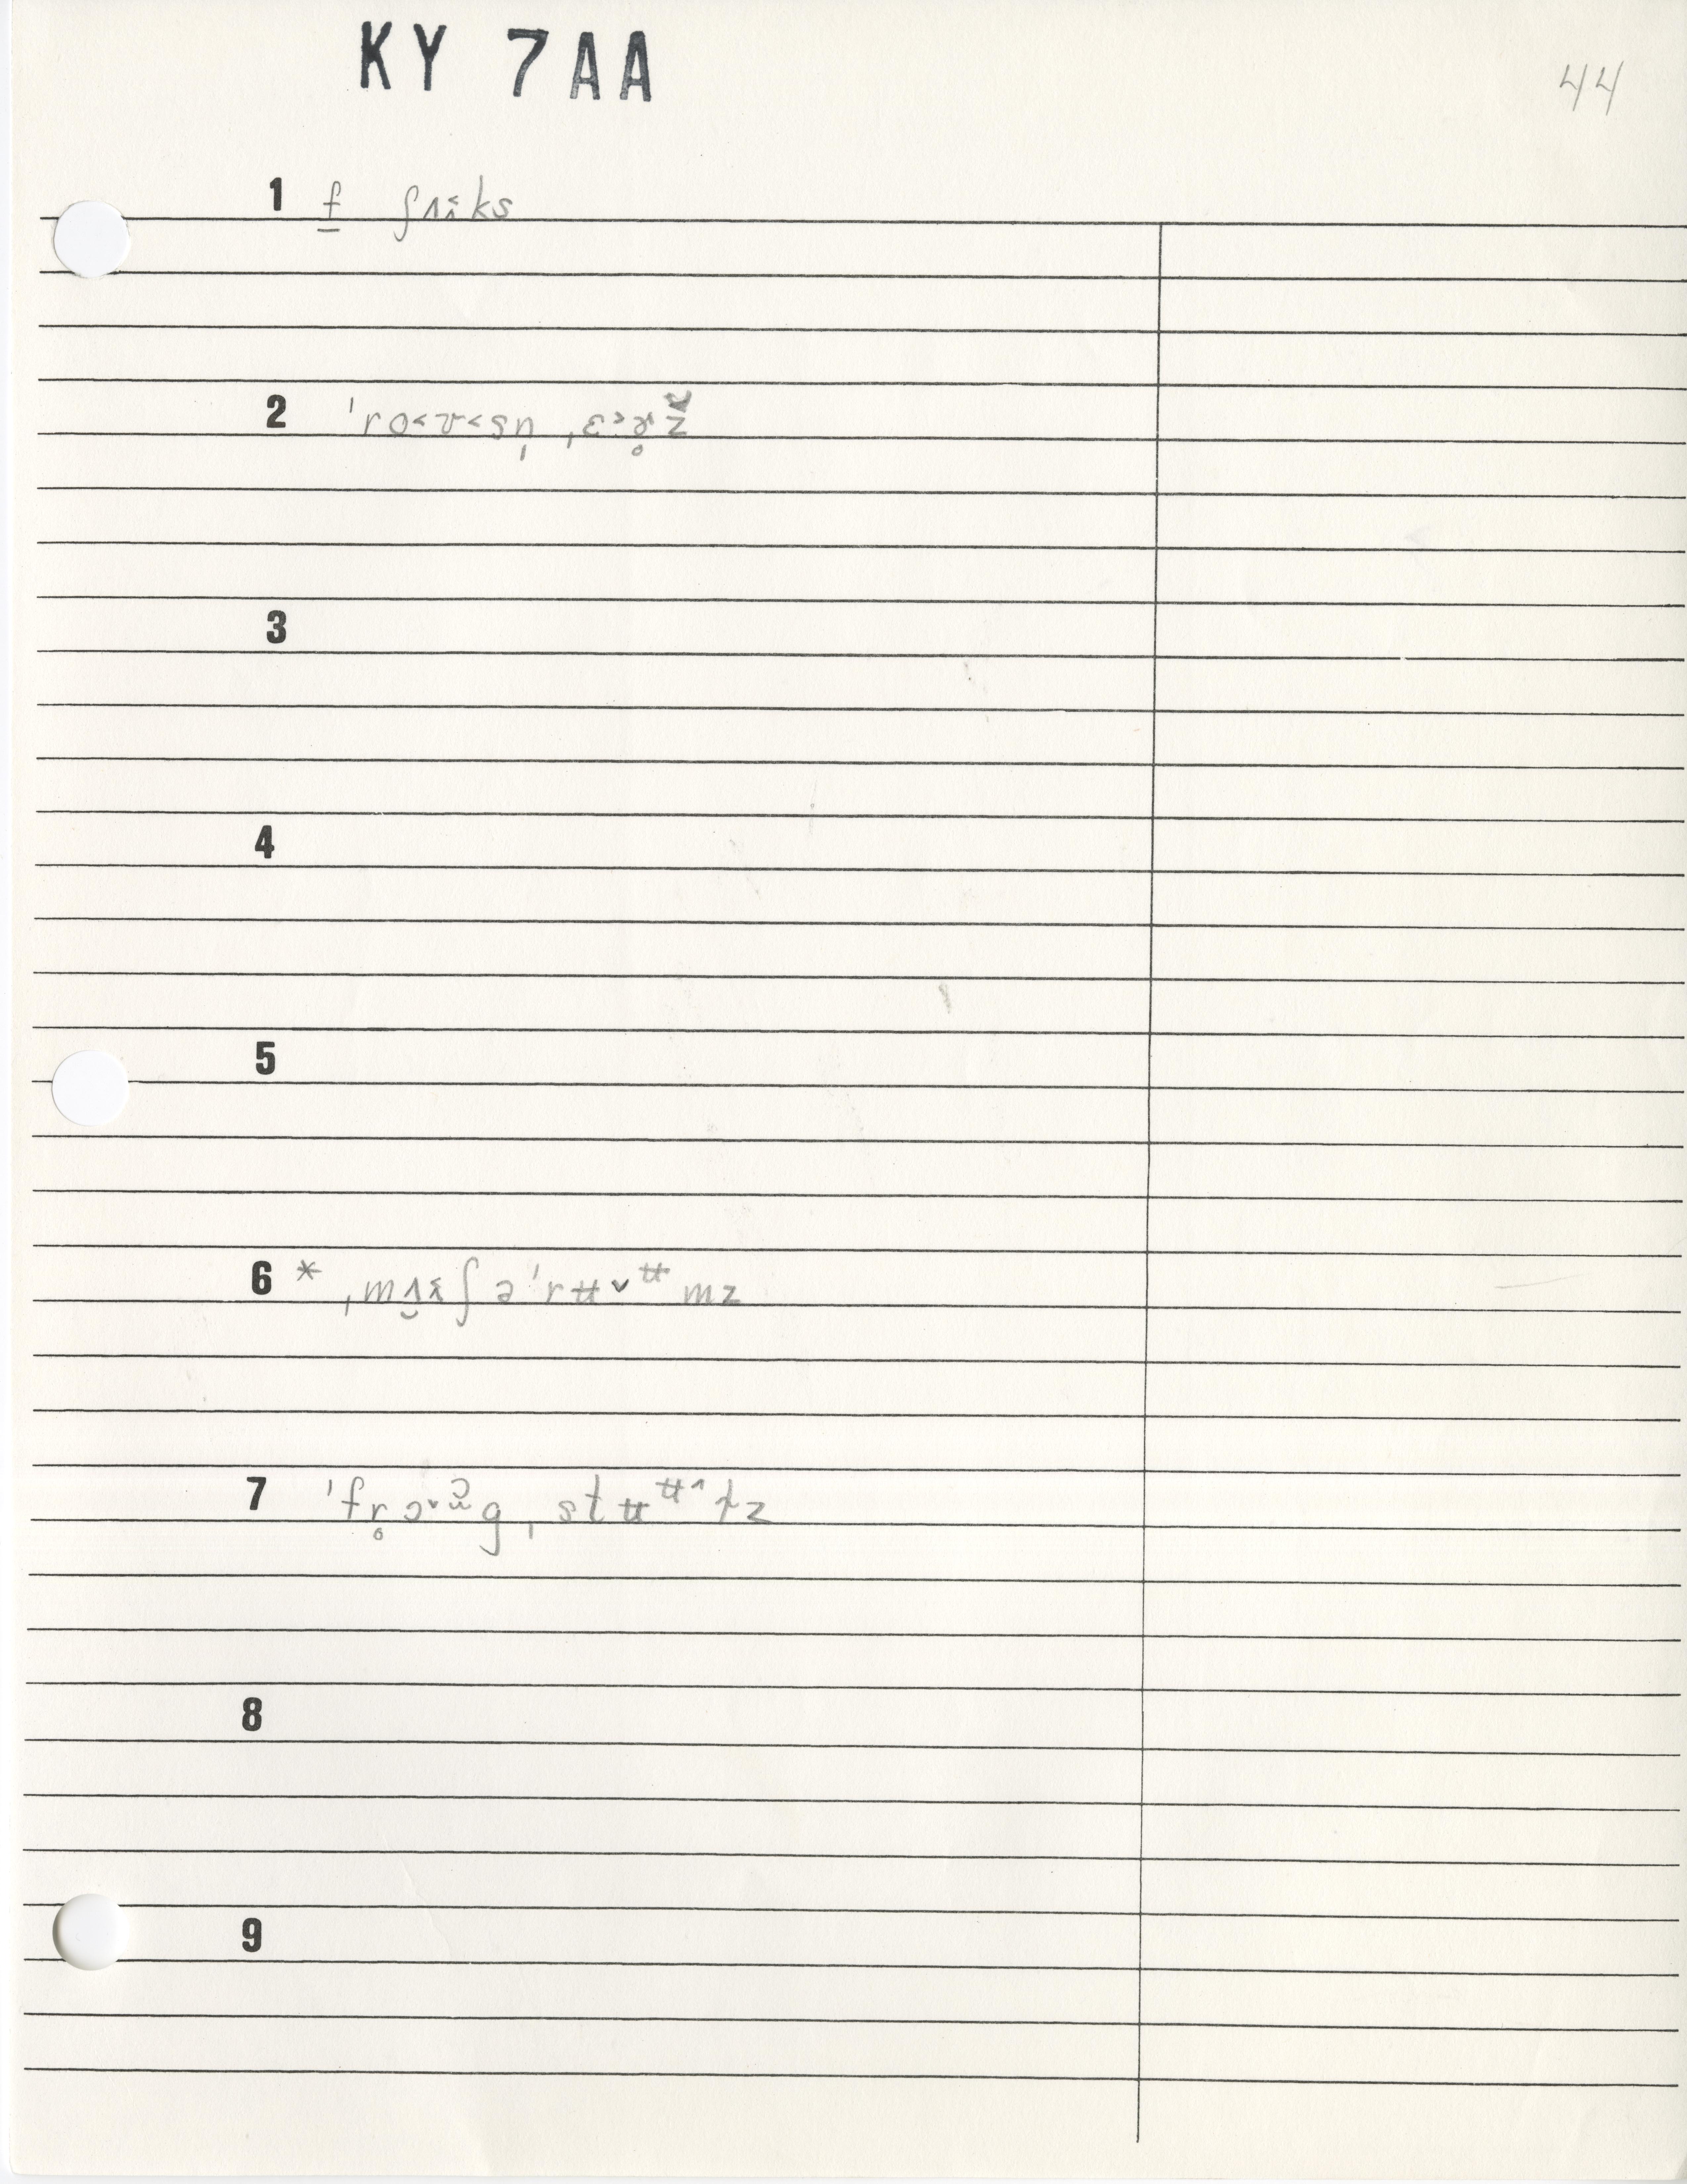 KY 7AA
44
1 f ʃʌɪ˂ks
2 ˈro˂ʊ˂sn̩ ˌɛ˃ɚ̥z
3
4
5
6 * ˌmʌ̯ɪ˂ʃəˈrʉ˅ʉmz
7 ˈfr̥ɔ˅ɔ̃g ˌstʉʉ˄ɫz
8
9